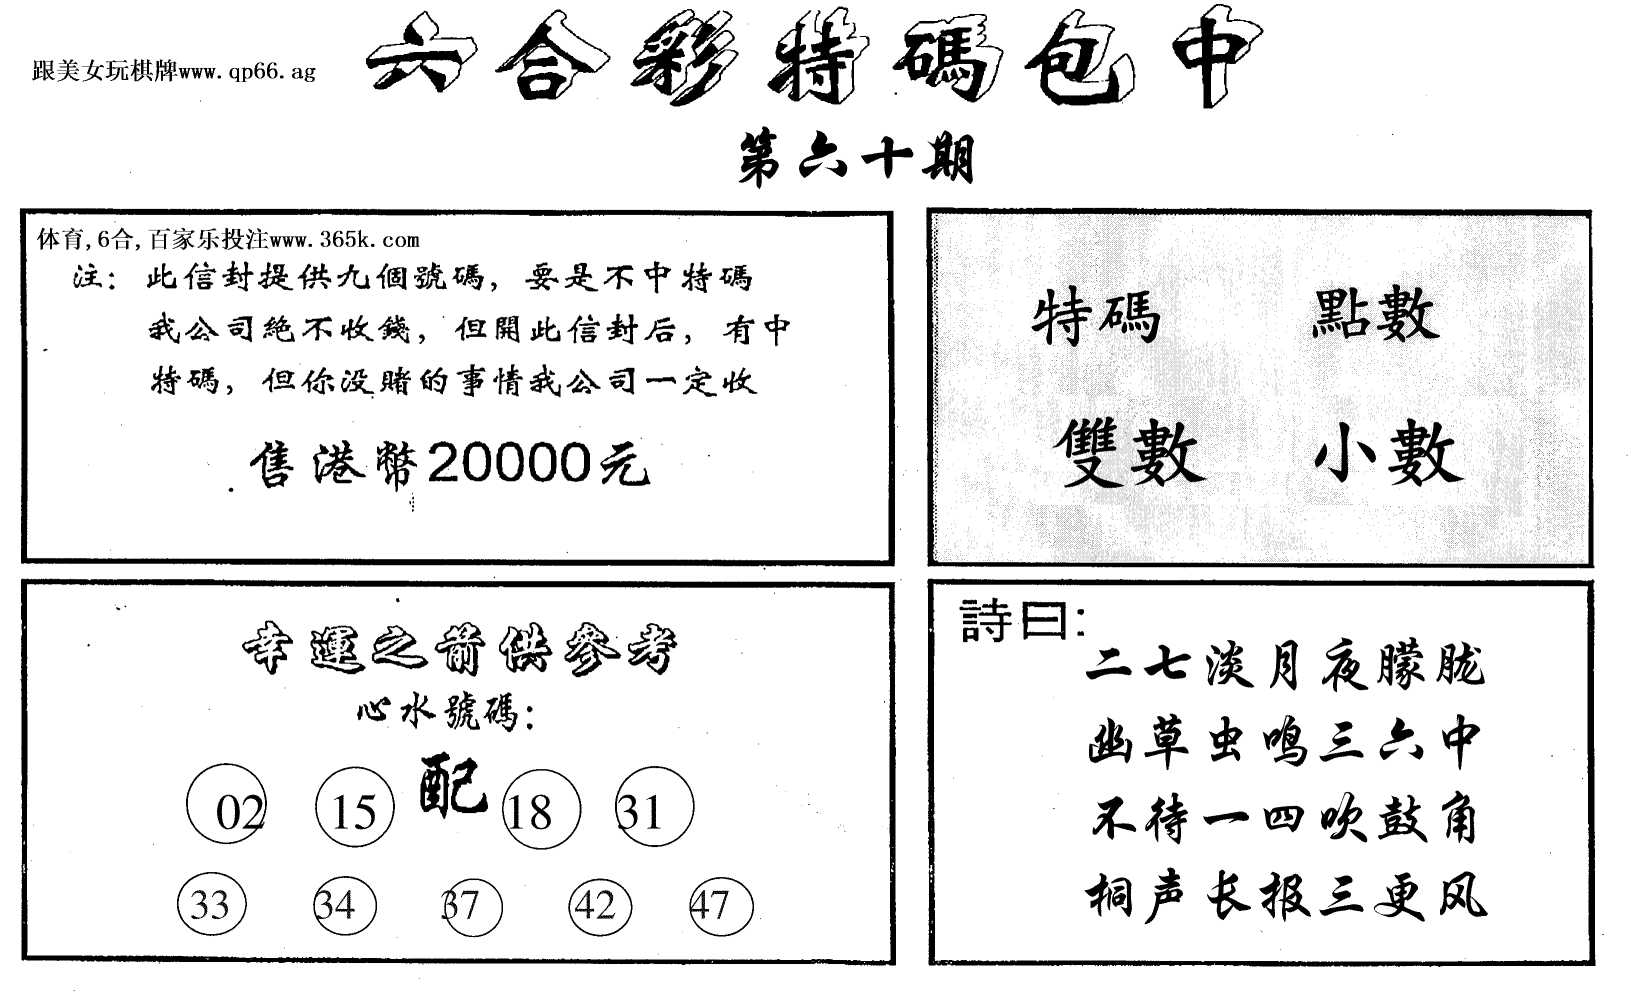 六合彩特碼包中
跟美女玩棋牌www.qp66.ag
第六十期
体育,6合,百家乐投注www.365k.com
注：此信封提供九個號碼，要是不中特碼
我公司絶不收錢，但開此信封后，有中
特碼，但你没賭的事情我公司一定收
售港幣20000元
特碼 點數
雙數 小數
幸運之箭供參考
心水號碼：
02 15 配 18 31
33 34 37 42 47
詩曰：
二七淡月夜朦胧
幽草虫鸣三六中
不待一四吹鼓角
桐声长报三更风